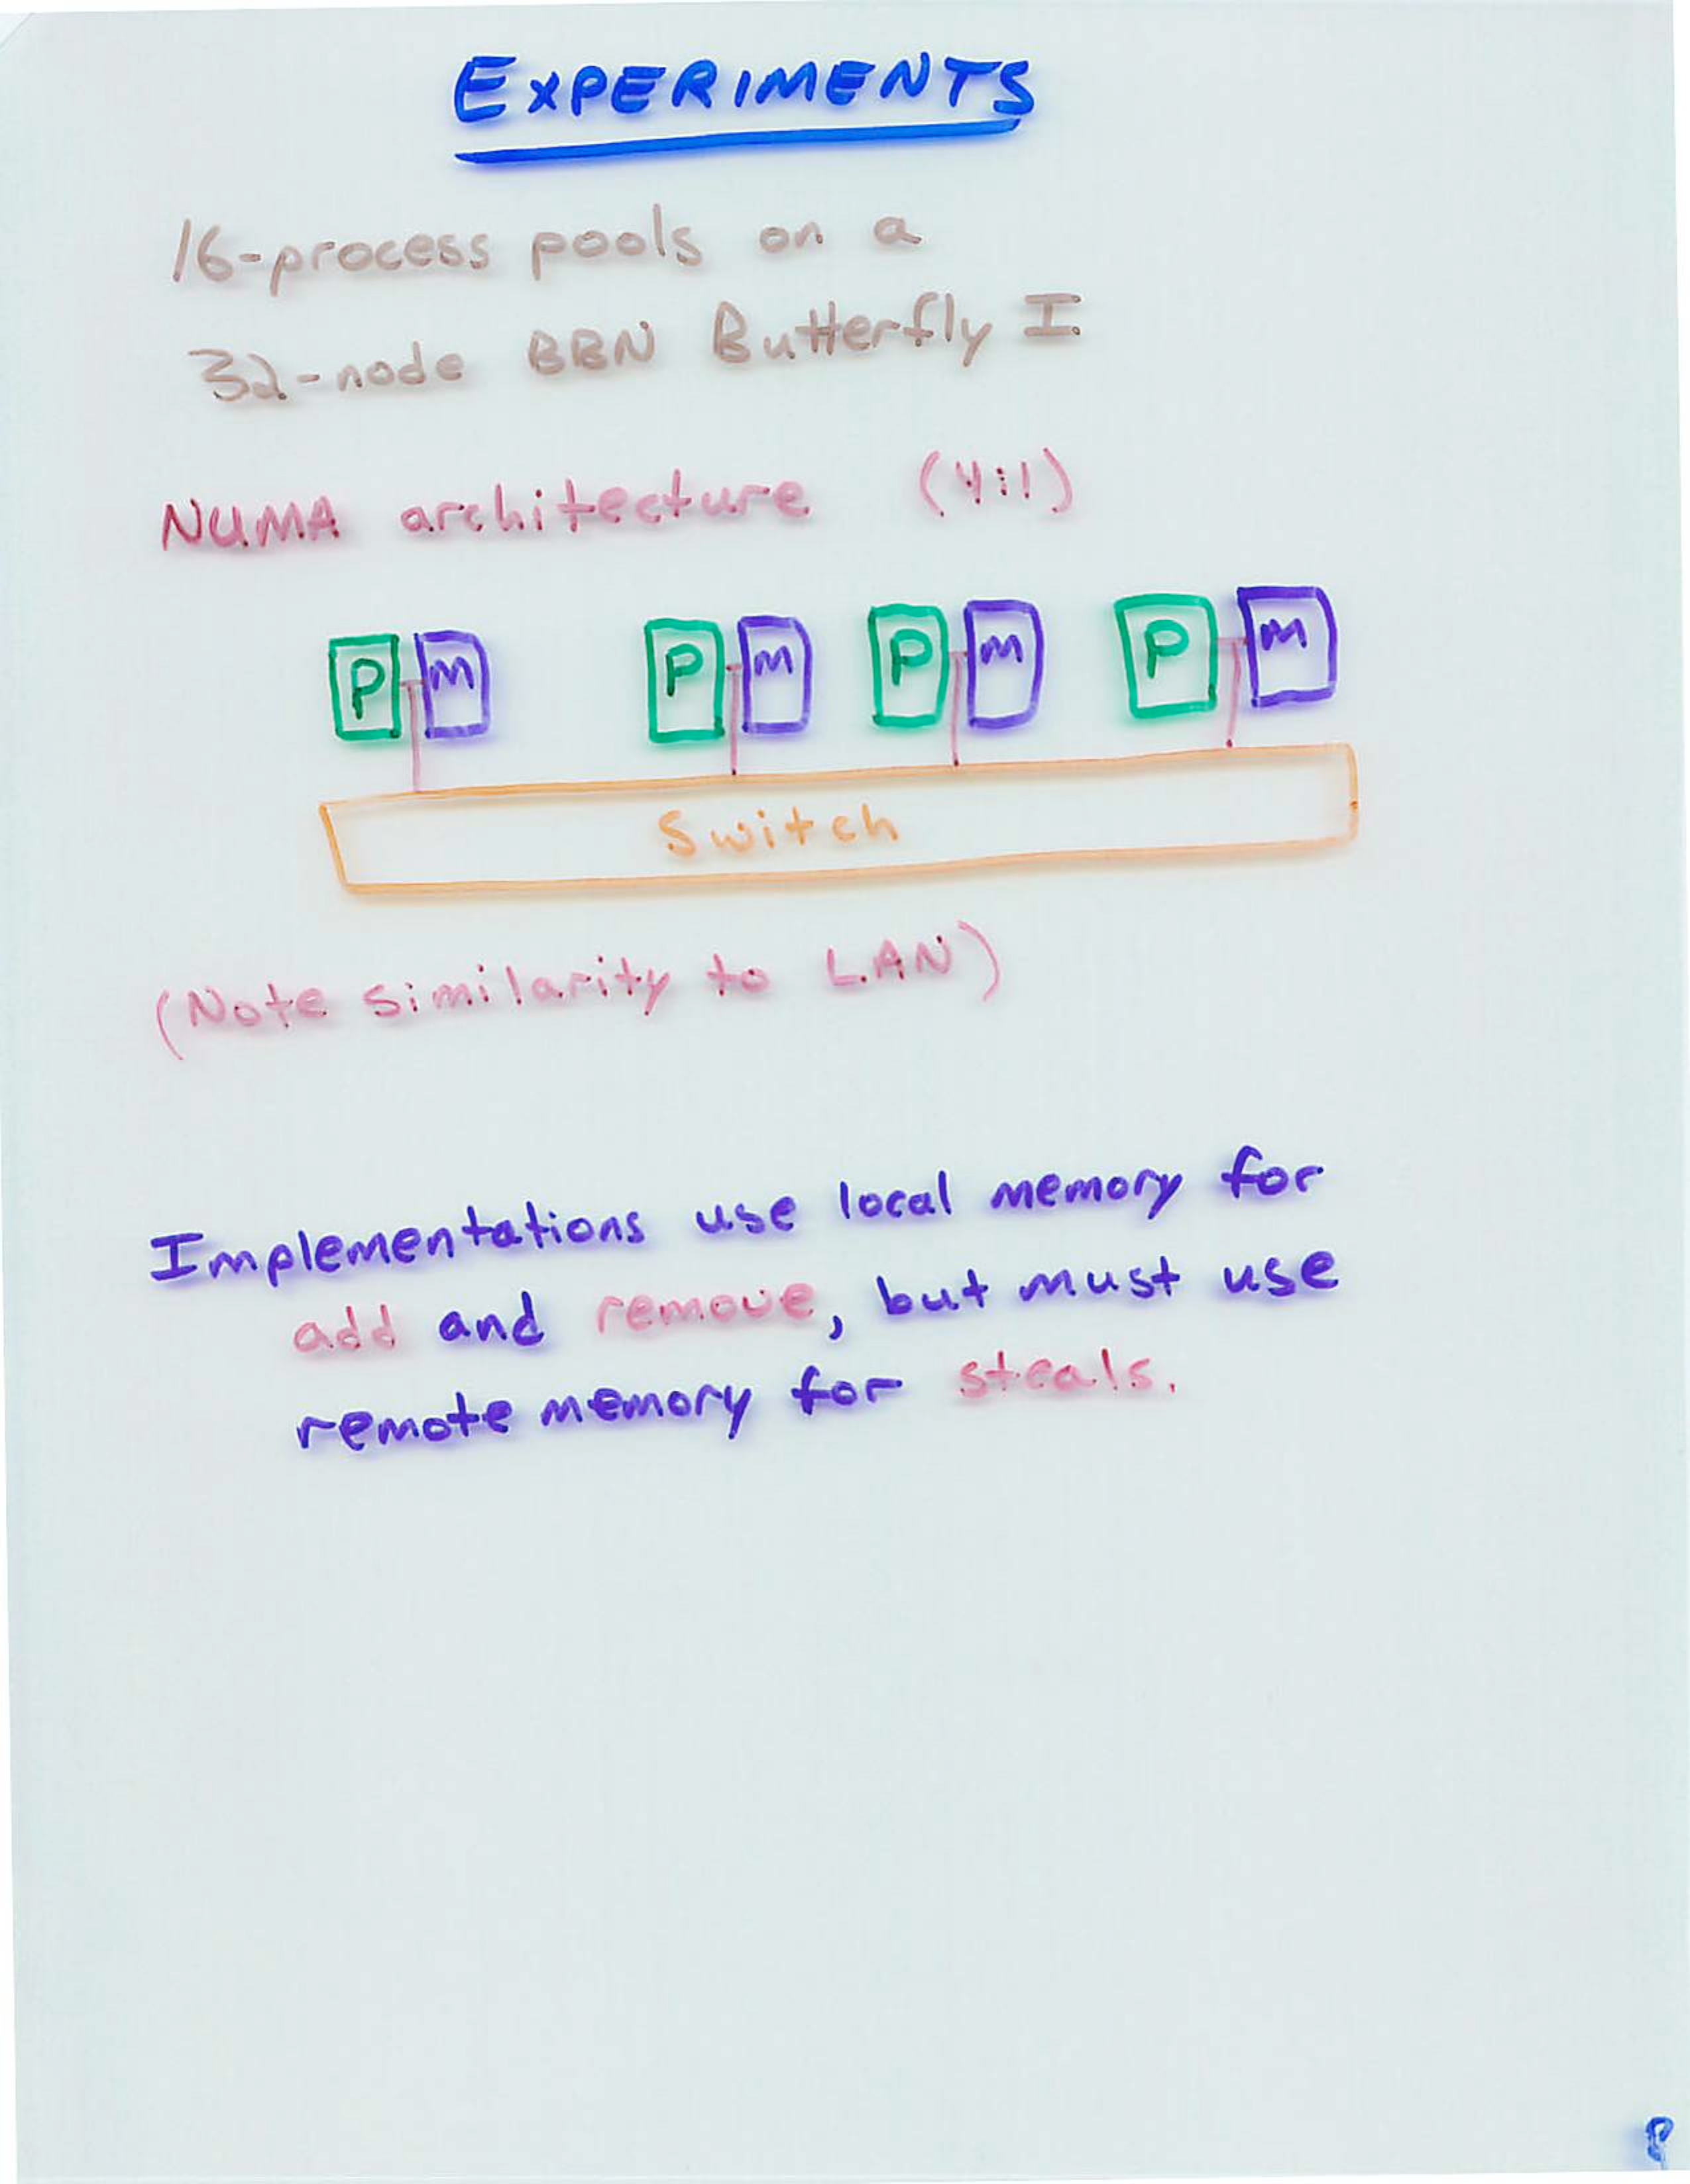 EXPERIMENTS
16-process pools on a
32-node BBN Butterfly I
NUMA architecture (4:1)
P M P M P M P M
Switch
(Note similarity to LAN)
Implementations use local memory for
add and remove, but must use
remote memory for steals.